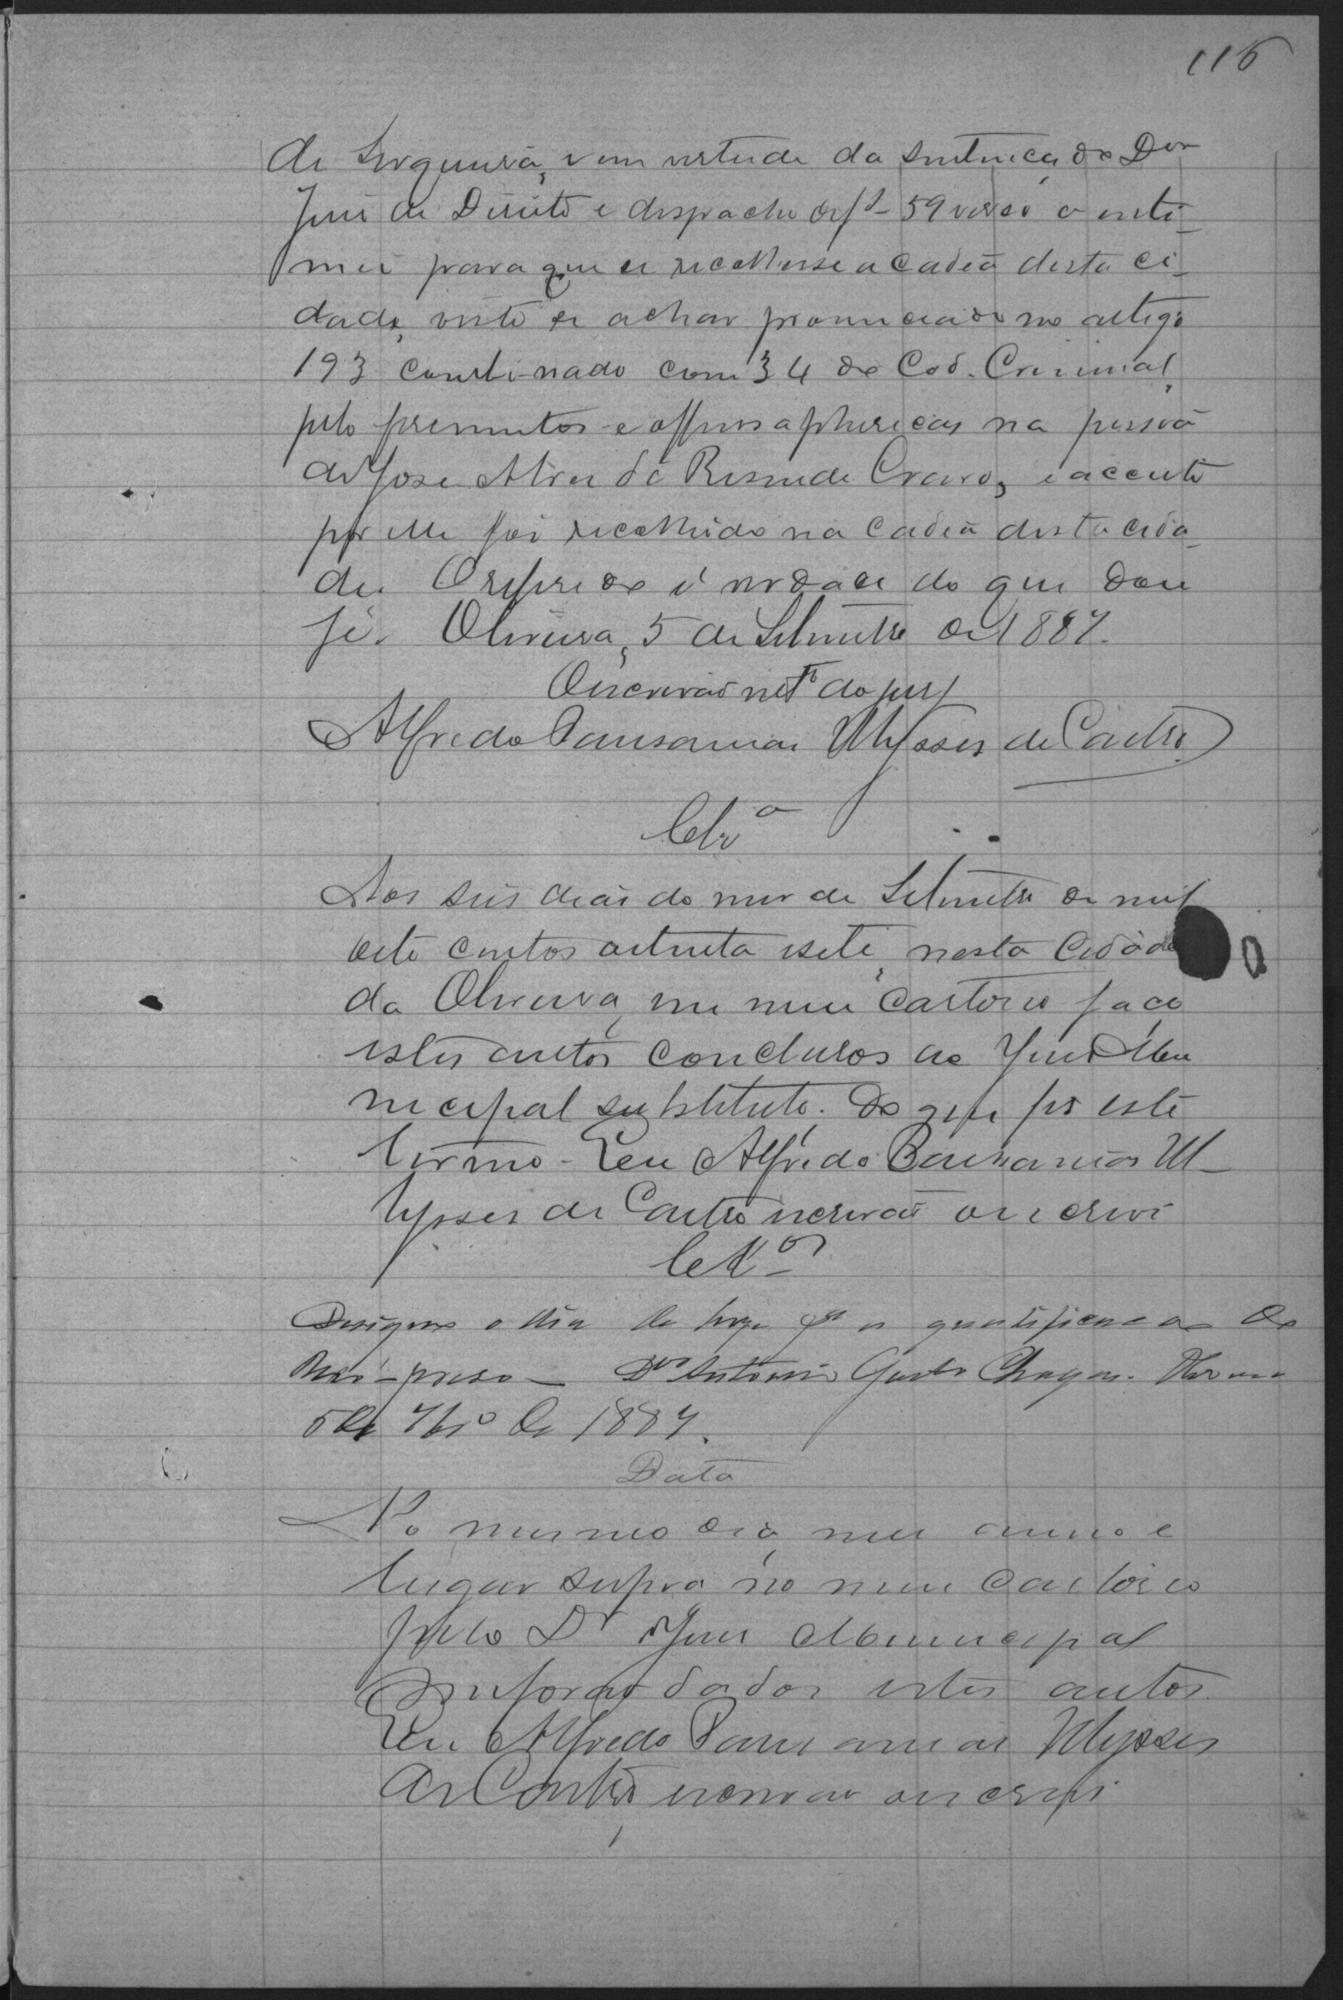 116
de Siqueira, e em virtude da sentença do Dor
Juis de Direito e despacho de fs 59 verso o inti-
mei para que se recolhesse a cadeia desta ci-
dade, visto se achar pronunciado no artigo
193 combinado com 34 do Cod. Criminal,
pelo ferimentos e offensas phisicas na pessoa
de José Alves de Resende Cravo, e acceito
por elle foi recolhido na cadeia desta cida-
de. O referido é verdade do que dou
fé. Oliveira, 5 de Setembro de 1887.
O escrivão int.º do jury
Alfredo Pausanias Ulysses de Castro
Clsº
Aos seis dias do mes de Setembro de mil
oito centos oitenta e sete, nesta Cidade
da Oliveira, em meu Cartorio faço
estes autos conclusos ao Juis Mu
nicipal substituto. Do que fis este
termo. Eu Alfredo Pausanias Ul-
lysses de Castro escrivão o escrevi
Clºs
Designo o dia de hoje pª a qualificacao do
Reo preso Dor Antonio Justo Chagas.
5 de 7brº de 1887.
Data
No mesmo dia, mes anno e
lugar supra no meu Cartorio
pelo Dr Juis Municipal
me forão dados estes autos.
Eu Alfredo Pausanias Ulysses
de Castro, escrivão o escrevi